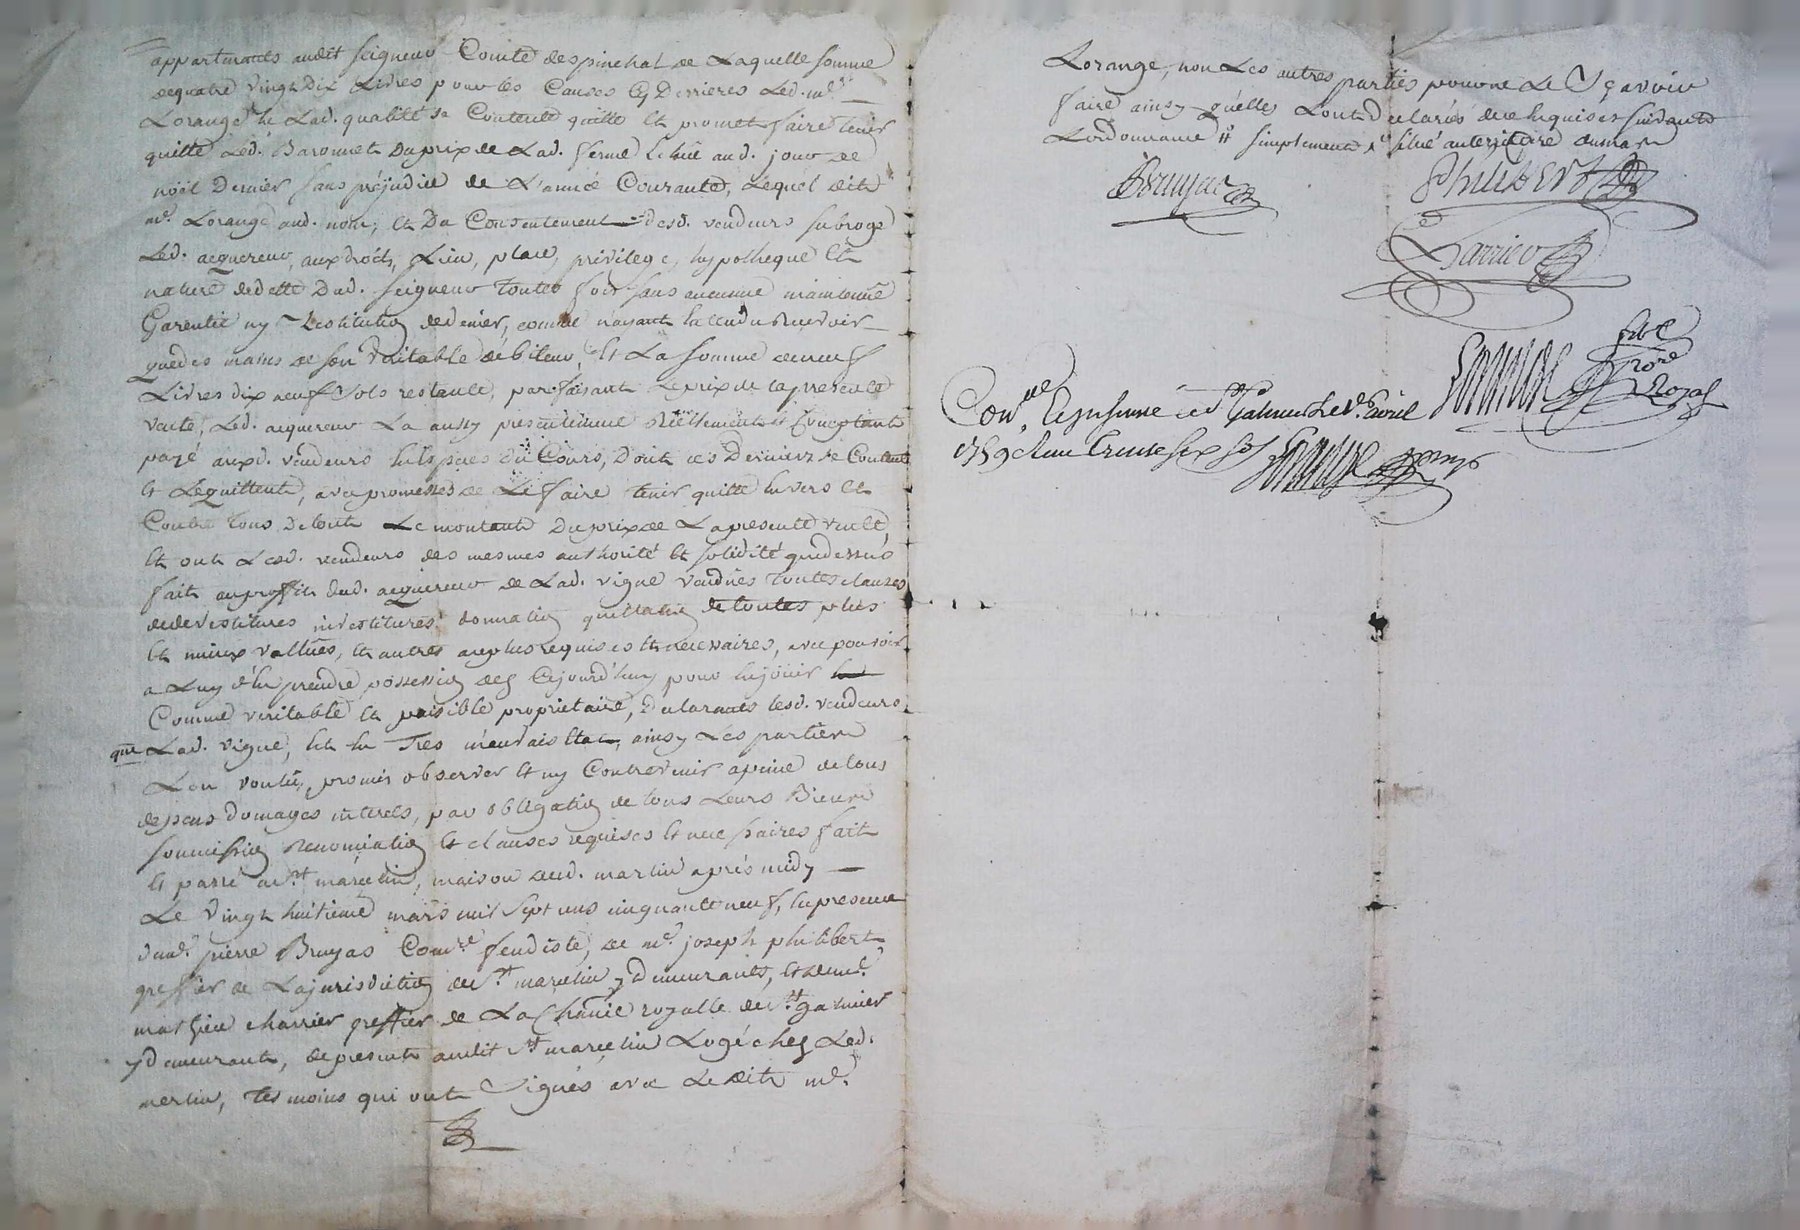 appartenants audit seigneur Comte despinchal de Laquelle somme
de quatre vingt dix Livres pour les Causes Cy Derrieres Led. me.
Lorange en Lad. qualitté se Contente quitte et promet faire tenir
quitte Led. Baronnet Du prix de Lad. ferme Echüe aud. jour de
noël Dernier sans prejudice de L'année Courante, Lequel dit
me. Lorange aud. nom, et Du Consentement desd. vendeurs subroge
Led. acquereur, aux droits, Lieu, place, privilege, hypotheque et
nature de dette Dud. seigneur toutes fois sans aucune maintenüe
Garentie ny Restitution de denier, comme n'ayant Recevoir
que des mains de son veritable débiteur, et La somme de neuf
Livres dix neuf sols restante, parfaisant Le prix de la presente
vente, Led. acquereur La aussy presentement Réellement et Comptant
payé auxd. vendeurs en Espaces du Cours, Dont ces Derniers se Contentent
et Lequittent, avec promesses de Le faire tenir quitte envers et
Contre tous De tout Le montant Du prix de La presente vente,
et ont Lesd. vendeurs des mesmes authorité et solidité que dessus
fait au proffit dud. acquereur de Lad. vigne vendües toutes clauses
de devestitures investitures donnation quittation de toutes plus
et mieux vallües, et autres au plus requises et necessaires, avec pouvoir
a Luy d'en prendre possession des Cejourd'huy pour en jöuir
Comme veritable et paisible proprietaire, Declarants lesd. vendeurs
que Lad. vigne, est en tres meauvais Etat, ainsy Les parties
L'on voulu, promis observer et ny Contrevenir a peine de tous
depens Domages interets, par obligation de tous Leurs Biens
soumission Renonciation et clauses requises et necessaires fait
et passé a St. marcelin, maison dud. marlin après midy
Le vingt huitieme mars mil sept cens cinquante neuf, en presence
dud. pierre Bruyas Comre. feudiste, de me. joseph philibert
greffier de La jurisdiction de St. marcelin y demeurants, et de me.
mathieu charrier greffier de La Chnie royalle de St. galmier
y demeurant, de present audit St. marcelin Logé chez Led.
merlin, tesmoins qui ont Signés avec Ledit me.
Lorange, non Les autres parties pour ne Le Sçavoir
faire ainsy qu'elles L'ont declarés de ce Enquises suivant
Lordonnance simplement situé au territoire
Bruyas
Philibert
Charrier
Conlé. Et Insinué a St. Galmier Le Avril
1759 Reçu trente six sols
Notre
Royal